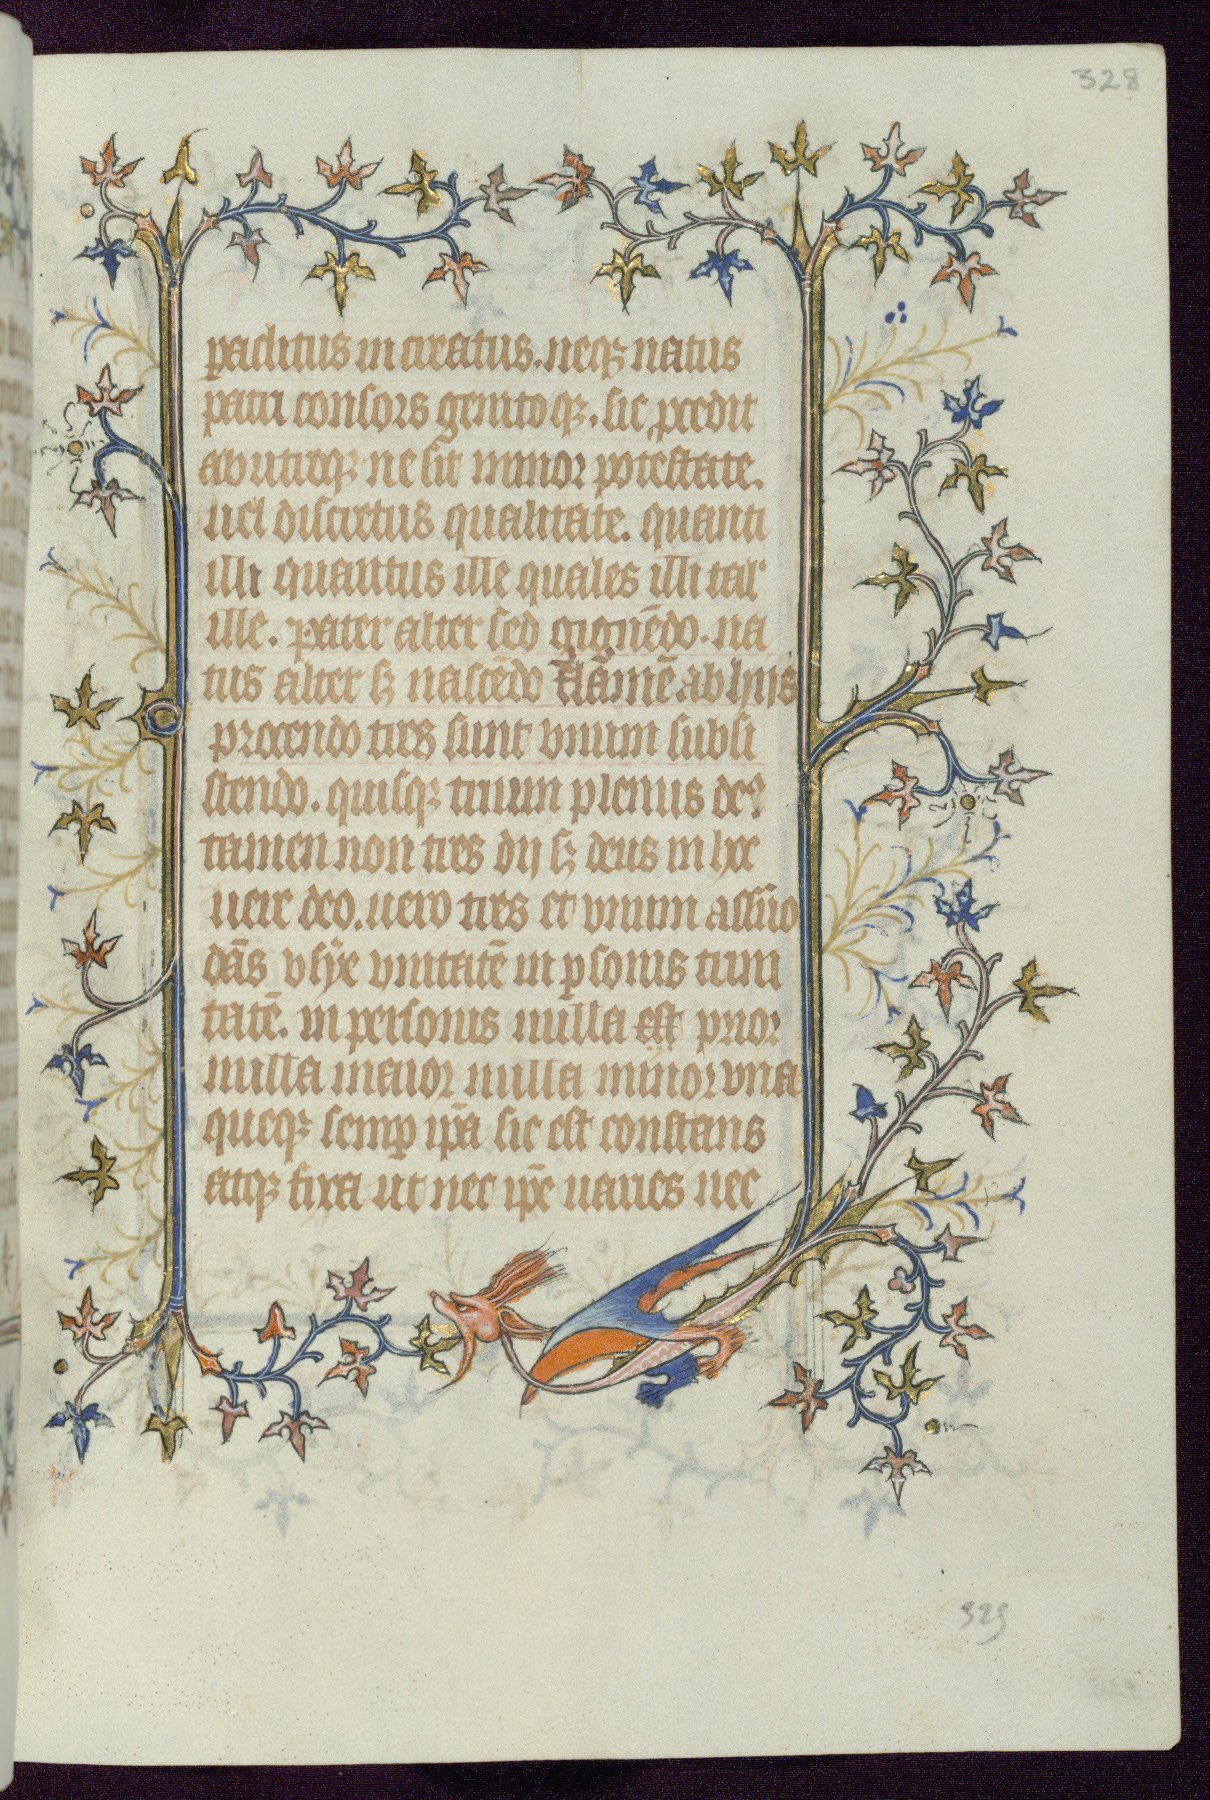 328
paclitus increatus. neqꝫ natus
patri consors genitoqꝫ. sic ꝓcedit
ab utroqꝫ ne sit minor potestate.
uel discretus qualitate. quanti
illi quantus ille quales illi tal'
ille. pater alter sed gignēdo. na
tus alter sꝫ nascēdo flāmē ab hijs
procendo tres sunt vnum subsi
stendo. quisqꝫ trium plenus deꝰ
tamen non tres dij sꝫ deus in hoc
uere deo. uero tres et vnum assuo
dās vsye vnitatē in ꝑsonis trini
tatē. in personis nulla est prior
nulla maior nulla minor vna
queqꝫ semꝑ ip̄a sic est constans
atqꝫ fixa ut nec ip̄e uaries nec
329